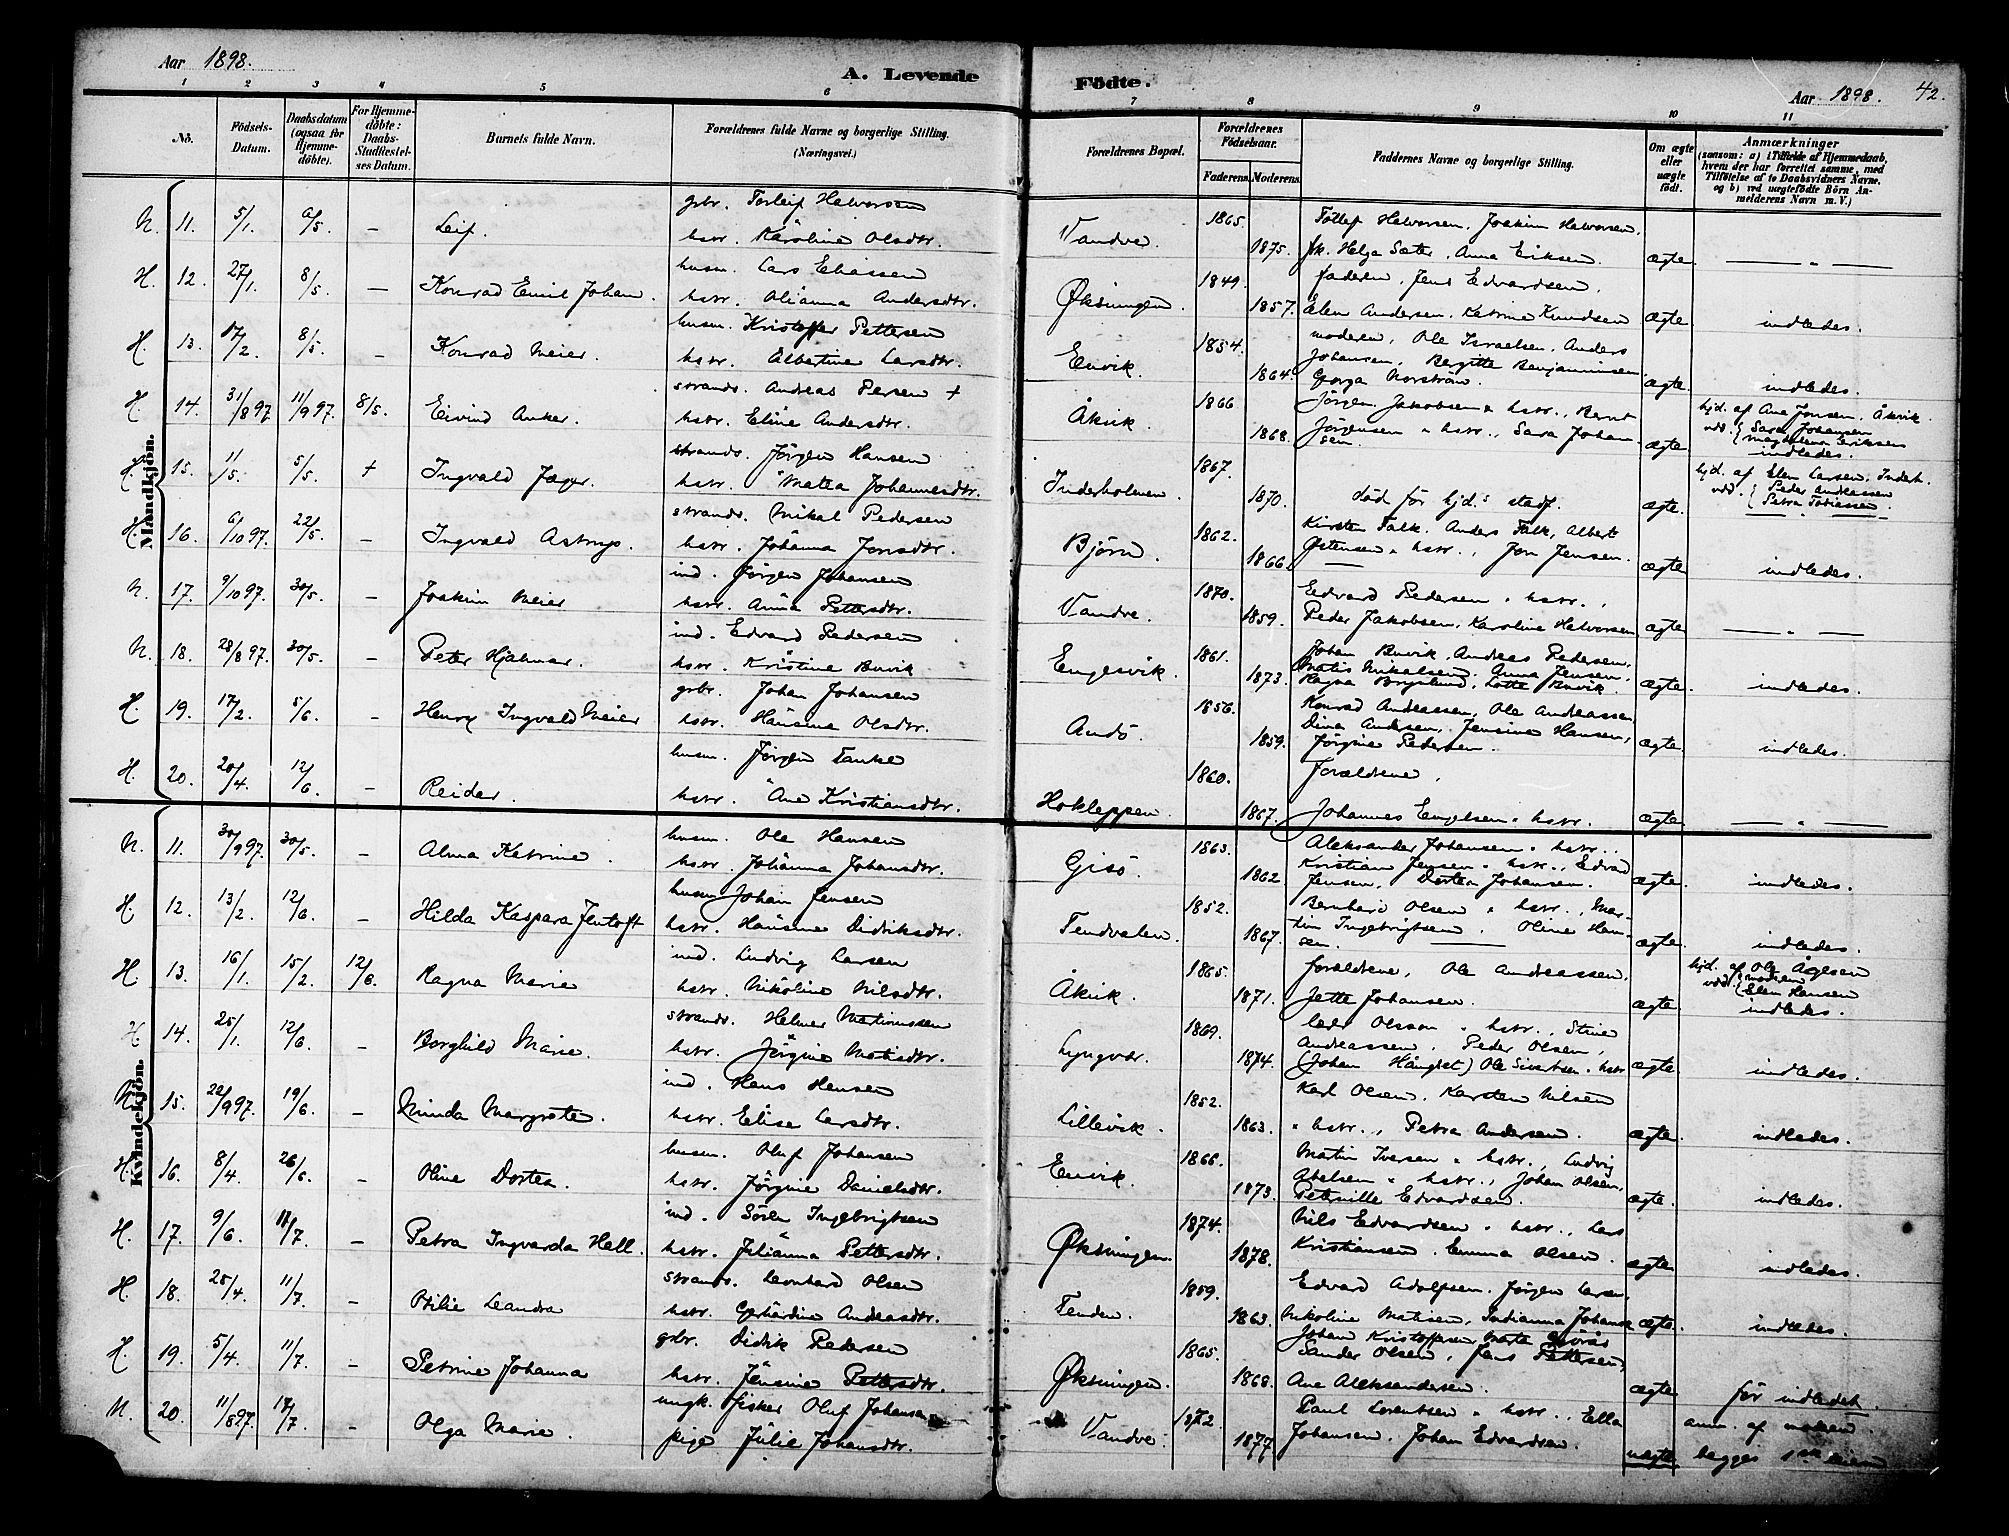 Aar 1898.
A. Levende Fødte.
Aar 1898. 42.
1 2 3 4 5 6 7 8 9 10 11
No. Fødsels-Datum. Daabsdatum (ogsaa for Hjemme-døbte). For Hjemme-døbte: Daabs-Stadfæstel-ses Datum. Barnets fulde Navn. Forældrenes fulde Navne og borgerlige Stilling. (Næringsvei.) Forældrenes Bopæl. Forældrenes Fødselsaar. Faderens Moderens. Faddernes Navne og borgerlige Stilling. Om ægte eller uægte født. Anmærkninger (saasom: a) i Tilfælde af Hjemmedaab, hvem der har forrettet samme, med Tilføielse af to Daabsvidners Navne, og b) ved uægtefødte Børn An-melderens Navn m. V.)
Mandkjøn.
N. 11. 5/1. 6/5. – Leif. gbr. Torleif Halvorsen
hstr. Karoline Olsdtr. Vandve. 1865. 1875. Halvorsen, Joakim Halvorsen,
frk. Helga Sæter, Anna Eriksen. ægte — " —
H. 12. 27/1. 8/5. – Konrad Emil Johan. husm. Lars Eliassen
hstr. Olianna Andersdtr. Øksningen. 1849. 1857. faderen, Jens Edvardsen,
Elen Andersen, Katrine Knudsen ægte indledes.
H. 13. 17/2. 8/5. – Konrad Meier. husm. Kristoffer Pettersen
hstr. Albertine Larsdtr. Envik. 1854. 1864. moderen, Ole Israelsen, Anders
Johansen, Bergitte Benjaminsen,
Georga Norstrøm. ægte indledes.
H. 14. 31/8 97. 11/9 97. 8/5. Eivind Anker. strands. Andreas Persen +
hstr. Eline Andersdtr. Åkvik. 1866. 1868. Jørgen Jakobsen " hstr., Bernt
Jørgensen " hstr., Sara Johan-
sen. ægte hjd. af Ane Jonsen, Åkvik.
vdd. { Sara Johansen
Magdalena Eriksen
indledes.
H. 15. 11/5. 5/5. + Ingvald Jæger. strands. Jørgen Hansen
hstr. Matea Johannesdtr. Inderholmen. 1867. 1870. død før hjd.s stadf. ægte hjd. af Elen Larsen, Inderh.
vdd. { Peder Andreassen
Petra Tobiassen.
H. 16. 6/10 97. 22/5. – Ingvald Astrup. strands. Mikal Pedersen
hstr. Johanna Jonsdtr. Bjørn. 1862. 1866. Kirsten Falk, Anders Falk, Albert
Østensen " hstr., Jon Jensen. ægte indledes.
N. 17. 9/10 97. 30/5. – Joakim Meier ind. Jørgen Johansen
hstr. Anna Pettersdtr. Vandve. 1870. 1859. Edvard Pedersen " hstr.,
Peder Jakobsen, Karoline Halvorsen ægte — " —
N. 18. 28/8 97. 30/5. – Peter Hjalmar. ind. Edvard Pedersen
hstr. Kristine Buvik Engesvik. 1861. 1873. Johan Buvik, Andreas Pedersen,
Matis Mikalsen, Anna Jensen,
Ragna, Lotte Buvik. ægte. indledes.
H. 19. 17/2. 5/6. – Henry Ingvald Meier gbr. Johan Johansen
hstr. Hansine Olsdtr. Andø. 1856. 1859. Konrad Andreassen, Ole Andreassen,
Dina Andersen, Jensine Hansen,
Jørgine Pedersen. ægte. indledes.
H. 20. 20/4. 12/6. – Reidar. husm. Jørgen Tanke
hstr. Ane Kristiansdtr. Hokleppen. 1860. 1867. Forældrene,
Johannes Engelsen " hstr. ægte — " —
Kvindekjøn.
N. 11. 30/9 97. 30/5. – Alma Katrine. husm. Ole Hansen
hstr. Johanna Johansdtr. Gisø. 1863. 1862. Aleksander Johansen " hstr.,
Kristian Jensen " hstr., Edvard
Jensen, Dortea Johansen. ægte. indledes.
H. 12. 13/2. 12/6. – Hilda Kaspara Jentoft husm. Johan Jensen
hstr. Hansine Didriksdtr. Tendvalen. 1852. 1867. Bernhard Olsen " hstr., Mar-
tin Ingebrigtsen, Oline Han-
sen. ægte. indledes.
H. 13. 16/1. 15/2. 12/6. Ragna Marie ind. Ludvig Larsen
hstr. Nikoline Nilsdtr. Åkvik. 1865. 1871. forældrene, Ole Andreassen,
Jette Johansen. ægte. hjd. af Ole Ågesen
vdd. { moderen
Elen Hansen
indledes.
H. 14. 25/1. 12/6. – Borghild Marie. strands. Helmer Martinussen
hstr. Jørgine Matisdtr. Lyngvær. 1869. 1874. Olsson " hstr., Stine
Andreassen, Peder Olsen,
(Johan) Ole Sivertsen " hstr ægte. indledes.
N. 15. 22/9 97. 19/6. – Minda Margrete. ind. Hans Hansen
hstr. Elise Larsdtr. Lillevik. 1852. 1863. Karl Olsen, Karsten Nilsen
" hstr., Petra Andersen. ægte. indledes.
H. 16. 8/4. 26/6. – Oline Dortea. husm. Oluf Johansen
hstr. Jørgine Danielsdtr. Envik. 1866. 1873. Martin Iversen " hstr., Ludvig
Abelsen " hstr., Johan Olsen,
Peternille Edvardsen. ægte. indledes.
H. 17. 9/6. 11/7. – Petra Ingvarda Hell. ind. Søren Ingebrigtsen
hstr. Julianna Pettersdtr. Øksningen. 1874. 1878. Nils Edvardsen " hstr., Lars
Kristiansen, Emma Olsen. ægte indledes.
H. 18. 25/4. 11/7. – Otilie Leandra strands. Leonhard Olsen
hstr. Gerhardine Andreasdtr. Tenden. 1859. 1863. Edvard Adolfsen, Jørgen Larsen,
Nikoline Matisen, Indianna Johansen ægte. indledes.
H. 19. 5/4. 11/7. – Petrine Johanna gbr. Didrik Pedersen
hstr. Jensine Pettersdtr. Øksningen. 1865. 1868. Johan Kristoffersen, Marta
Sander Olsen, Jens Pettersen,
Ane Aleksandersen. ægte før indledet.
N. 20. 11/8 97. 17/7. – Olga Marie. ungk. fisker Oluf Johansen
pige Julie Johansdtr. Vandve. 1872. 1877. Paul Lorentsen " hstr., Ella
Johansen, Johan Edvardsen. uægte anm. af moderen.
begges 1ste